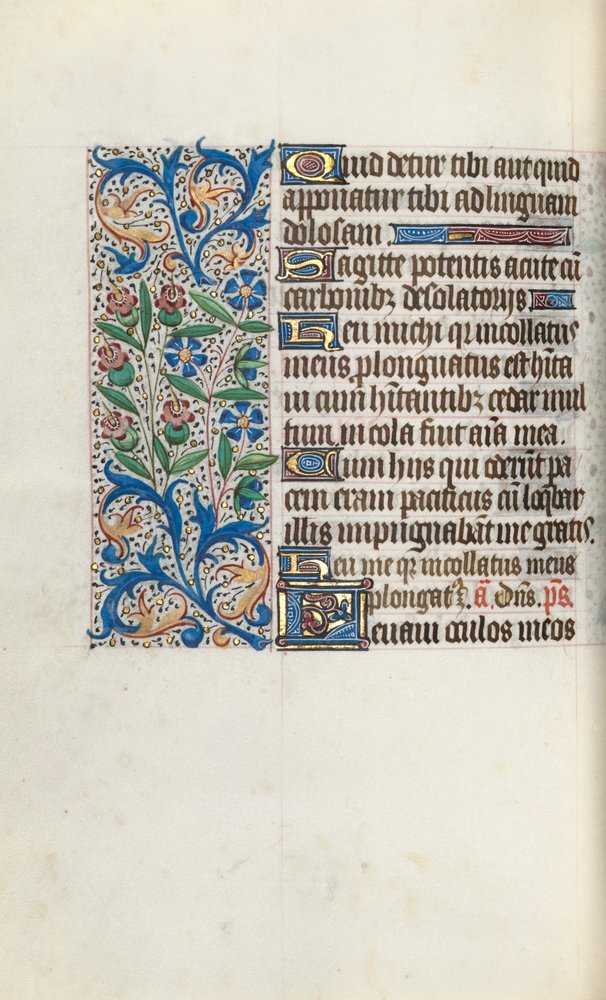 Quid detur tibi aut quid
apponatur tibi ad linguam
dolosam
Sagitte potentis acute cū
carbonibꝫ desolatorijs
Heu michi qr incollatus
meus plonguatus est hīta
ui cum hītantibꝫ cedar mul
tum incola fuit aīa mea.
Cum hiis qui oderūt pa
cem eram pacificus cū loqbar
illis impugnabāt me gratis.
Heu me qr incollatus meus
plongatꝫ. ā. Dn̄s. ps̄.
Leuaui oculos meos